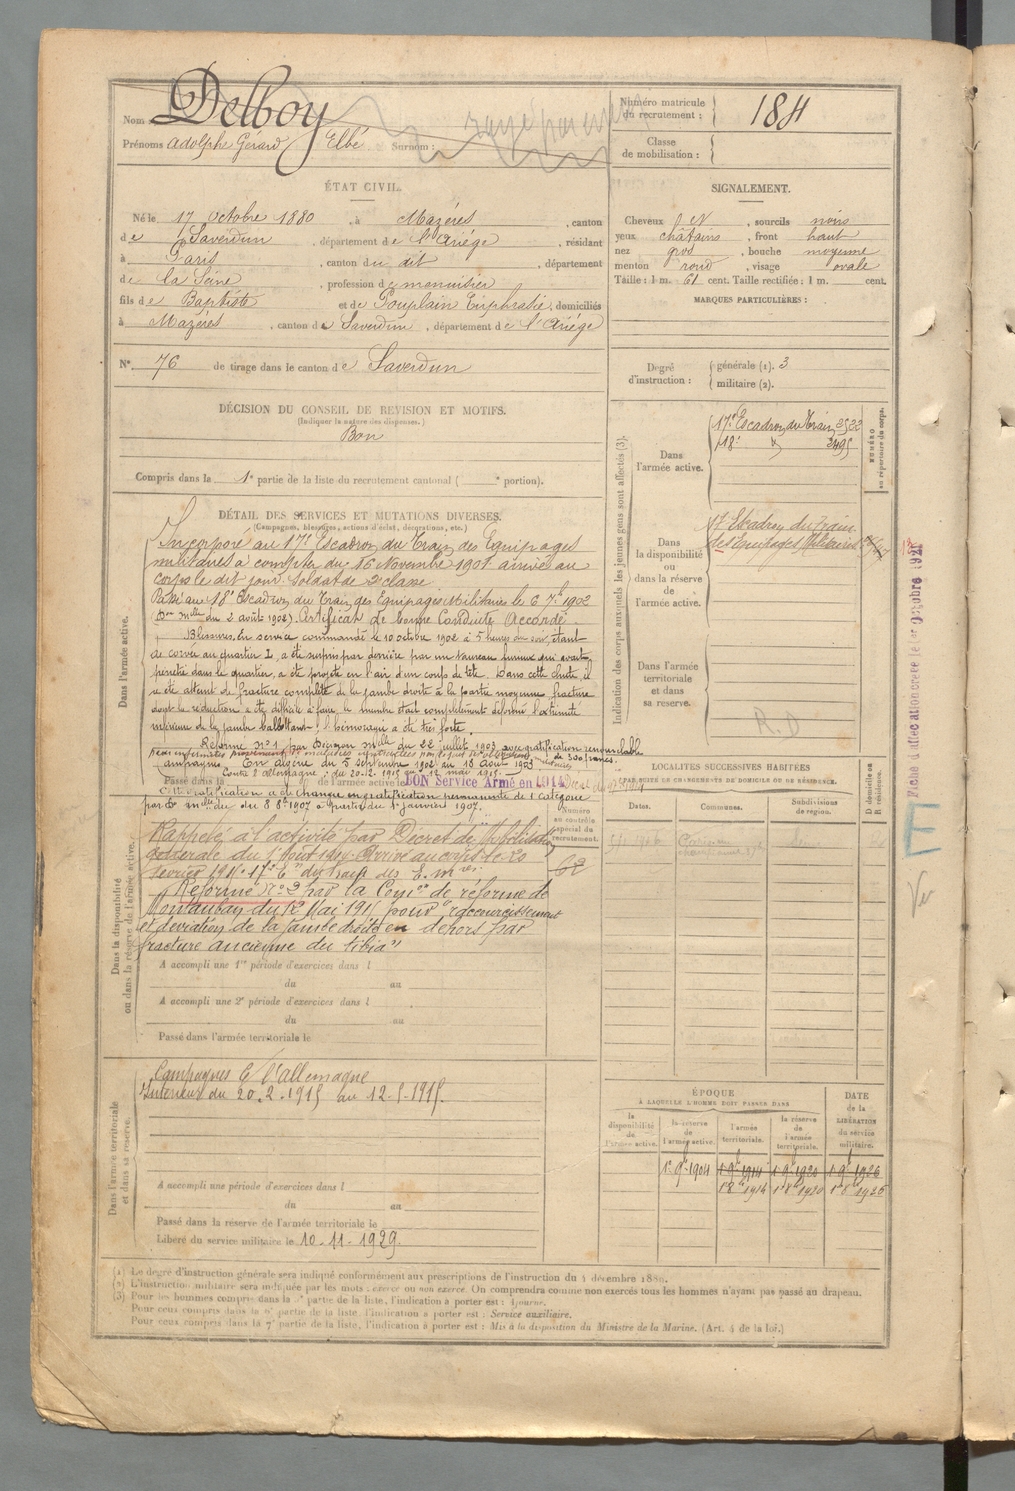 Nom Delboy
Prénoms Adolphe Gérard Elbé Surnom :
Numéro matricule du recrutement : 184
Classe de mobilisation :
ÉTAT CIVIL.
Né le 17 Octobre 1880, à Mazères, canton
de Saverdun, département de l'Ariège, résidant
à Paris, canton du dit, département
de la Seine, profession de menuisier
fils de Baptiste et de Pouplain Euphrasie, domiciliés
à Mazères, canton de Saverdun, département de l'Ariège
N° 76 de tirage dans le canton de Saverdun
SIGNALEMENT.
Cheveux N, sourcils noirs
yeux châtains, front haut
nez gros, bouche moyenne
menton rond, visage ovale
Taille : 1 m. 61 cent. Taille rectifiée : 1 m. cent.
MARQUES PARTICULIÈRES :
Degré d'instruction : générale (1). 3
militaire (2).
DÉCISION DU CONSEIL DE REVISION ET MOTIFS.
(Indiquer la nature des dispenses.)
Bon
Compris dans la 1e partie de la liste du recrutement cantonal ( e portion).
Indication des corps auxquels les jeunes gens sont affectés (3).
NUMÉRO au répertoire du corps.
Dans l'armée active.
17e Escadron du Train 2522
18e " 2495
Dans la disponibilité ou dans la réserve de l'armée active.
17e Escadron du train
des Equipages Militaires
Dans l'armée territoriale et dans sa réserve.
R.D
DÉTAIL DES SERVICES ET MUTATIONS DIVERSES.
(Campagnes, blessures, actions d'éclat, décorations, etc.)
Dans l'armée active.
Incorporé au 17e Escadron du Train des Equipages
militaires à compter du 16 Novembre 1901 arrivé au
corps le dit jour. Soldat de 2e classe
Passé au 18e Escadron du Train des Equipages Militaires le 6 7bre 1902
du 2 août 1902) Certificat de bonne Conduite Accordé.
Blessures. En service commandé le 10 octobre 1902 à 5 heures du soir, étant
de corvée au quartier I, a été surpris par derrière par un taureau furieux qui avait
pénétré dans le quartier, a été projeté en l'air d'un coup de tête. Dans cette chute, il
a été atteint de fracture complète de la jambe droite à la partie moyenne, fracture
dont la réduction a été difficile à faire, le membre était complètement déformé l'extrémité
inférieure de la jambe ballottant ; l'hémorragie a été très forte.
Réformé n° 1 par Décision Mlle du 22 juillet 1903 avec gratification renouvelable
de 300 francs.
Campagnes. En Algérie du 5 septembre 1902 au 18 août 1903
Contre l'Allemagne : du 20-12-1915 au 12 mai 1915.
Passé dans l de l'armée active le
BON Service Armé en 1914
Cette gratification a été changée en gratification permanente de 1e catégorie
par Don mlle du du 8 8bre 1907 à partir du 1er janvier 1907.
Numéro au contrôle spécial du recrutement.
62
Dans la disponibilité ou dans la réserve de l'armée active.
Rappelé à l'activité par Décret de Mobilisation
générale du 1er Août 1914. Arrivé au corps le 20
février 1915. 17e Eon du train des E. Mres
Réformé n° 2 par la Conon de réforme de
Montauban du 12 Mai 1915 pour "raccourcissement
et déviation de la jambe droite en dehors par
fracture ancienne du tibia"
A accompli une 1re période d'exercices dans l
du au
A accompli une 2e période d'exercices dans l
du au
Passé dans l'armée territoriale le
LOCALITÉS SUCCESSIVES HABITÉES
PAR SUITE DE CHANGEMENTS DE DOMICILE OU DE RÉSIDENCE.
Dates. Communes. Subdivisions de région. D domicile ou R résidence.
Fiche d'affectation créée le 1er octobre 1921
E
Vu
Dans l'armée territoriale et dans sa réserve.
Campagnes C/ l'allemagne
Intérieur du 20.2.1915 au 12-5-1915.
A accompli une période d'exercices dans l
du au
Passé dans la réserve de l'armée territoriale le
Libéré du service militaire le 10-11-1929.
ÉPOQUE
À LAQUELLE L'HOMME DOIT PASSER DANS
la disponibilité de l'armée active. la réserve de l'armée active. l'armée territoriale. la réserve de l'armée territoriale.
DATE de la LIBÉRATION du service militaire.
1er 9bre 1904 1er 9bre 1914 1er 9bre 1920 1er 9bre 1926
1er 8bre 1914 1er 8bre 1920 1er 8bre 1926
(1) Le degré d'instruction générale sera indiqué conformément aux prescriptions de l'instruction du 4 décembre 1889.
(2) L'instruction militaire sera indiquée par les mots : exercé ou non exercé. On comprendra comme non exercés tous les hommes n'ayant pas passé au drapeau.
(3) Pour les hommes compris dans la partie de la liste, l'indication à porter est : Ajourné.
Pour ceux compris dans la 6e partie de la liste, l'indication à porter est : Service auxiliaire.
Pour ceux compris dans la 7e partie de la liste, l'indication à porter est : Mis à la disposition du Ministre de la Marine. (Art. 4 de la loi.)